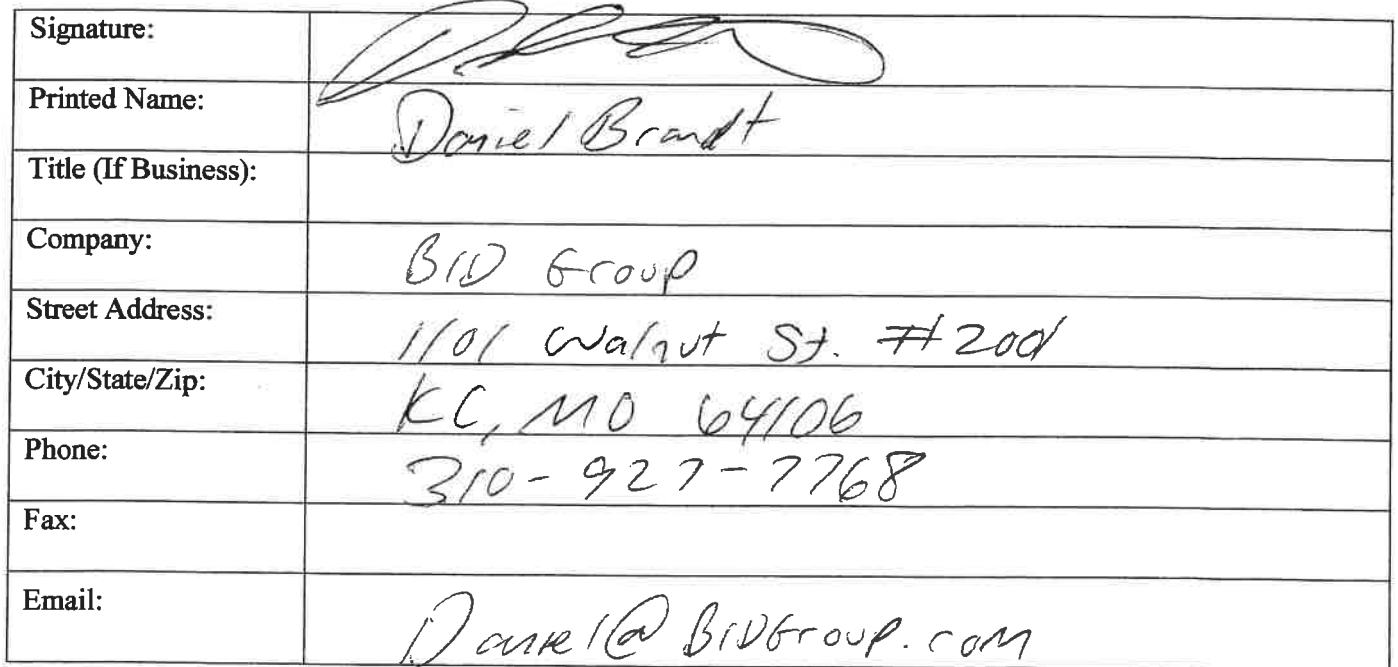 Signature:
Printed Name: Daniel Brandt
Title (If Business):
Company: BID Group
Street Address: 1101 Walnut St. #200
City/State/Zip: KC, MO 64106
Phone: 310-927-7768
Fax:
Email: Daniel@BIDGroup.com